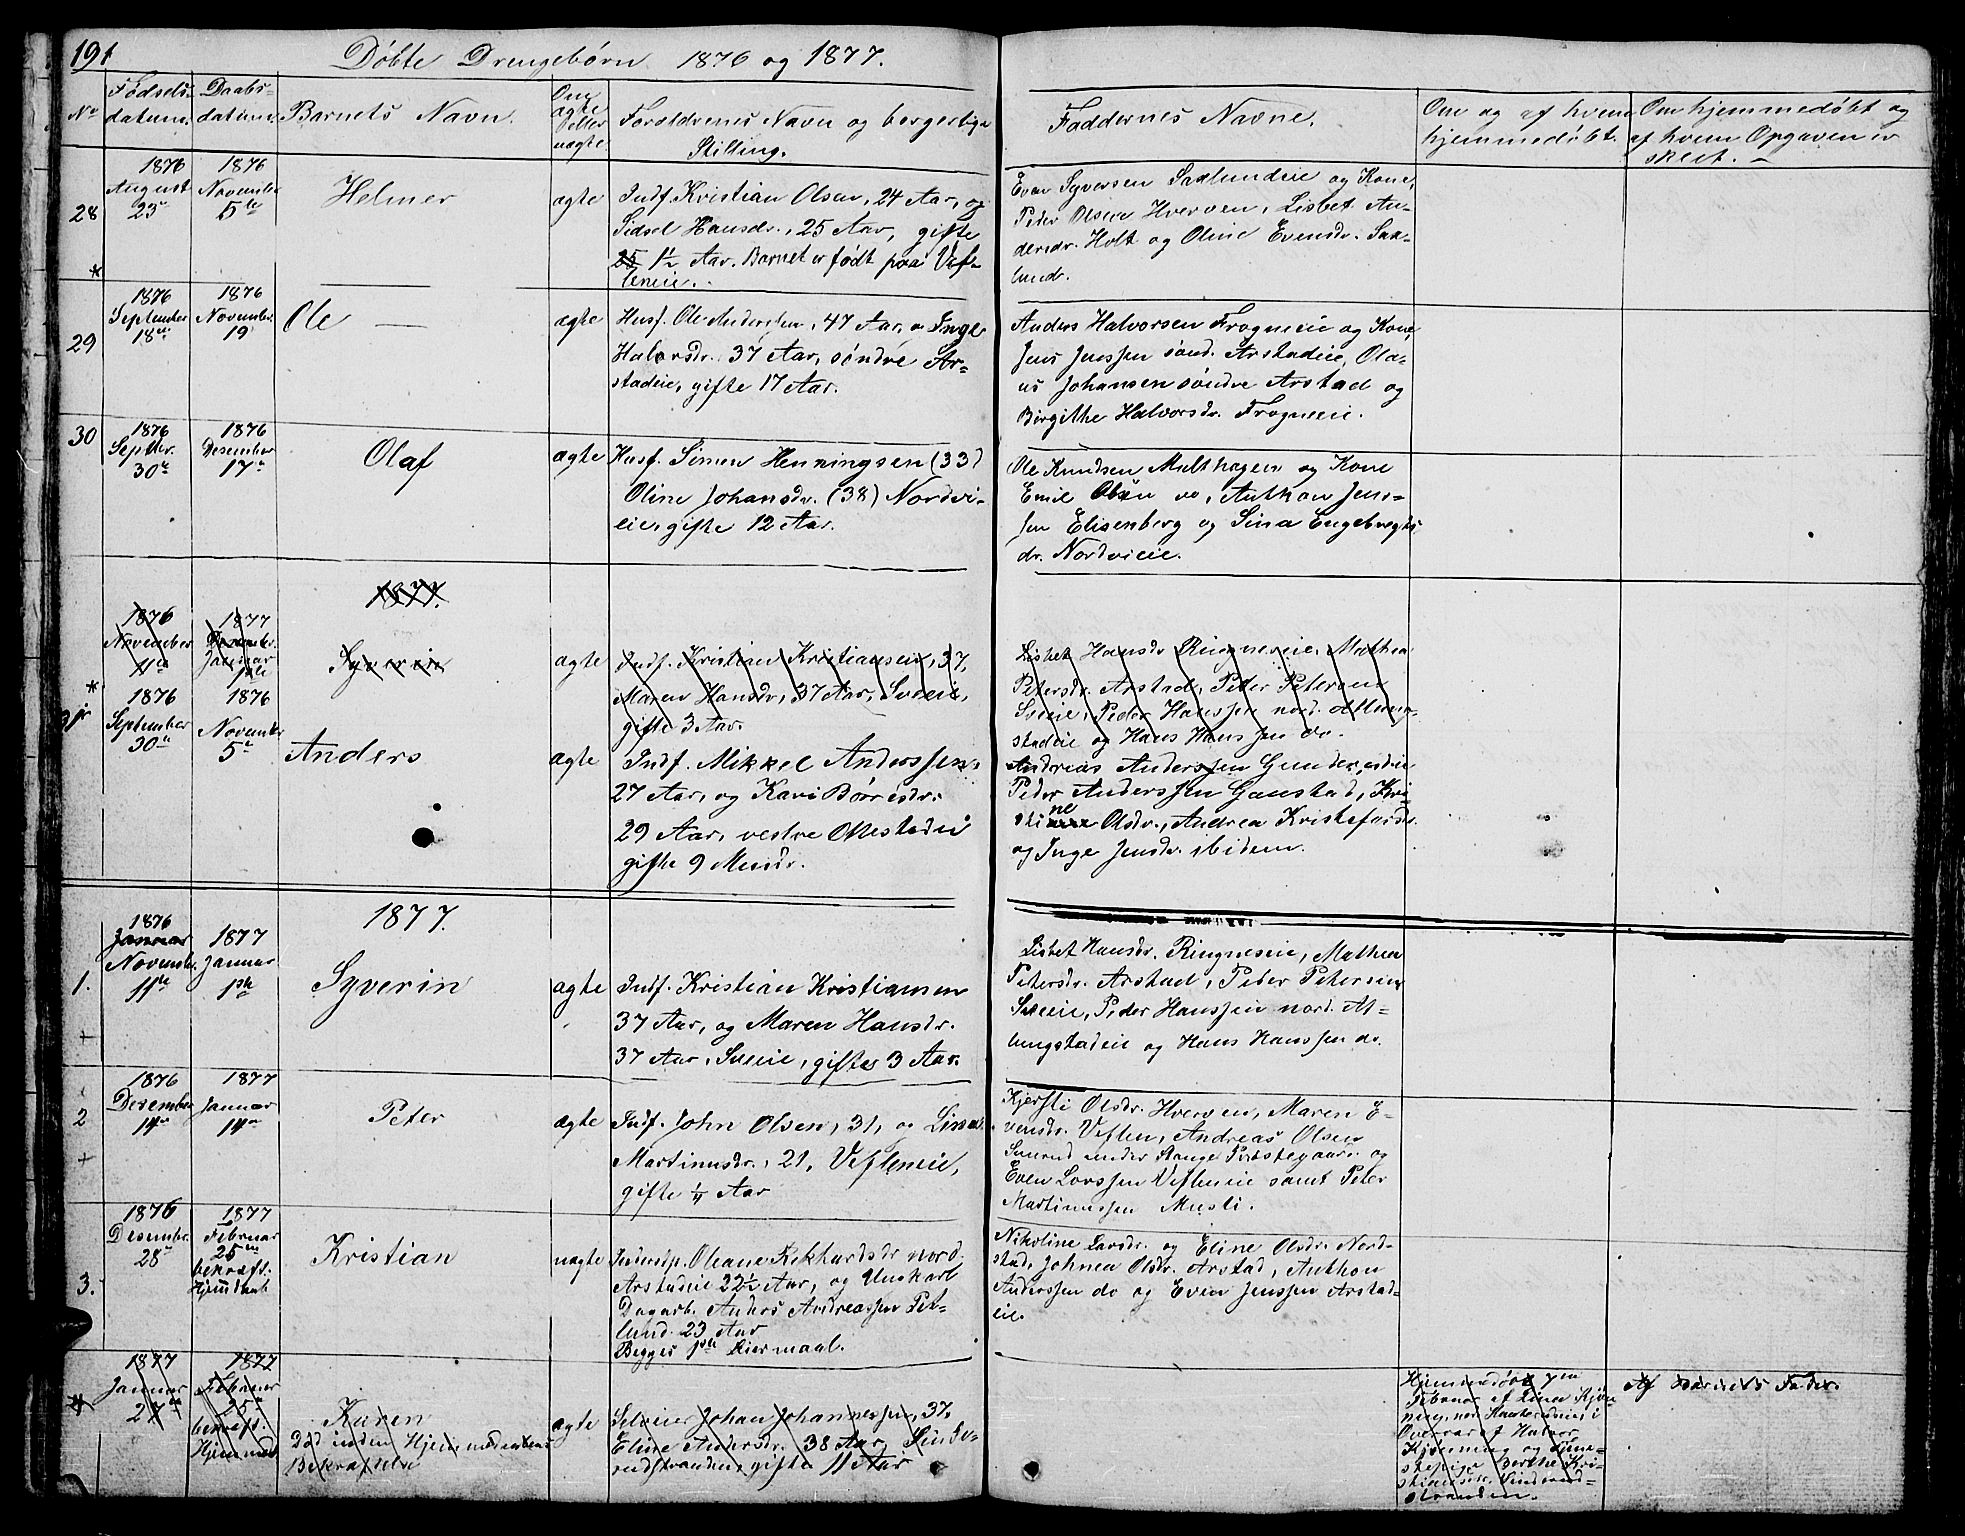 191
Døbte Drengebørn 1876 og 1877.
No
Fødsels-
datum.
Daabs-
datum.
Barnets Navn.
Om
ægte
eller
uægte
Forældrenes Navn og borgerlige
Stilling.
Faddernes Navne.
Om og af hvem
hjemmedøbt.
Om hjemmedøbt og
af hvem Opgaven er
skeet. —
28
1876
August
23de
1876
November
5te
Helmer
ægte
Indf. Kristian Olsen, 24 Aar, og
Sidsel Hansdr., 25 Aar, gifte
25 1½ Aar. Barnet er født paa Vef-
leneie.
Even Syversen Saxlundeie og Kone,
Peder Olsen Hverven, Lisbet An-
dersdr. Holt og Oline Evensdr. Sax-
lund.
*
29
1876
September
18de
1876
November
19
Ole —
ægte
Husf. Ole Andersen, 47 Aar, o Inge
Halvorsdr. 37 Aar, søndre Ar-
stadeie, gifte 17 Aar.
Anders Halvorsen Frogneeie og Kone,
Jens Jenssen sønd. Arstadeie, Ola-
us Johansen søndre Arstad og
Birgithe Halvorsdr. Frogneeie.
30
1876
Septbr.
30te
1876
Desember
17de
Olaf
ægte
Husf. Simen Henningsen (33)
Oline Johansdr. (38) Nordvi-
eie, gifte 12 Aar.
Ole Knudsen Multhagen og Kone
Emil Olsen do, Anthon Jens-
sen Elisenberg og Sina Engebregts-
dr. Nordvieie.
1877.
1876
November
11te
1877
Desember
Januar
1ste
Syverin
ægte
Indf. Kristian Kristiansen, 37,
Maren Hansdr, 37 Aar, Sveeie,
gifte 3 Aar.
Lisbet Hansdr Ringneseie, Mathea
Petersdr. Arstad, Peder Petersen
Sveeie, Peder Hanssen nord.
stadeie og Hans Hanssen do.
*
31
1876
September
30te
1876
November
5te
Anders
ægte
Indf. Mikkel Anderssen,
27 Aar, og Kari Børresdr.
29 Aar, vestre Ottestadeie
gifte 9 Mdr.
Andreas Anderssen
Peder Anderssen Gaustad, Kri-
stine Olsdr., Andrea Kristofersdr.
og Inge Jensdr. ibidem.
1877.
1.
1876
Januar
November
11te
1877
Januar
1ste
Syverin
ægte
Indf. Kristian Kristiansen
37 Aar, og Maren Hansdr.
37 Aar, Sveeie, gifte 3 Aar.
Lisbet Hansdr. Ringneseie, Mathea
Petersdr. Arstad, Peder Petersen
Sveeie, Peder Hanssen nord. At-
lungstadeie og Hans Hanssen do.
+
2
1876
Desember
14de
1877
Januar
14de
Peter
ægte
Indf. John Olsen, 31, og Lina
Martinusdr., 21, Vefleneie,
gifte ¼ Aar
Kjersti Olsdr. Hverven, Maren E-
vensdr. Veflen, Andreas Olsen
under Stange Præstegaard og
Even Larssen Vefleneie samt Peter
Martinussen Musli.
+
3.
1876
Desembr.
28de
1877
Februar
25de
bekræft.
Hjemdaab
Kristian
uægte
Inderstp. Oleane Rikhardsdr nord.
Arstadeie 22½ Aar, og Ungkarl
Dagarb. Anders Andreassen Pet-
lund. 23 Aar
Begges 1ste Leiermaal.
Nikoline Larsdr. og Eline Olsdr. Nord-
stad, Johnea Olsdr. Arstad, Anthon
Anderssen do og Even Jenssen Arstad-
eie.
1877
Januar
27de
1877
Februar
25de
bekræft.
Hjemmed
Karen
Død inden Hjemmedaabens
Bekræftelse
ægte
Selveier Johan Johannessen, 37,
Eline Andersdr. 38 Aar,
gifte 11 Aar
Hjemmedøbt 7de
Februar af Lina Kjer-
Overvær af Halvor
Kjerming og Tjene-
stepige Berthe Kri-
stiansdr.
stranden.
Af Barnets Fader.